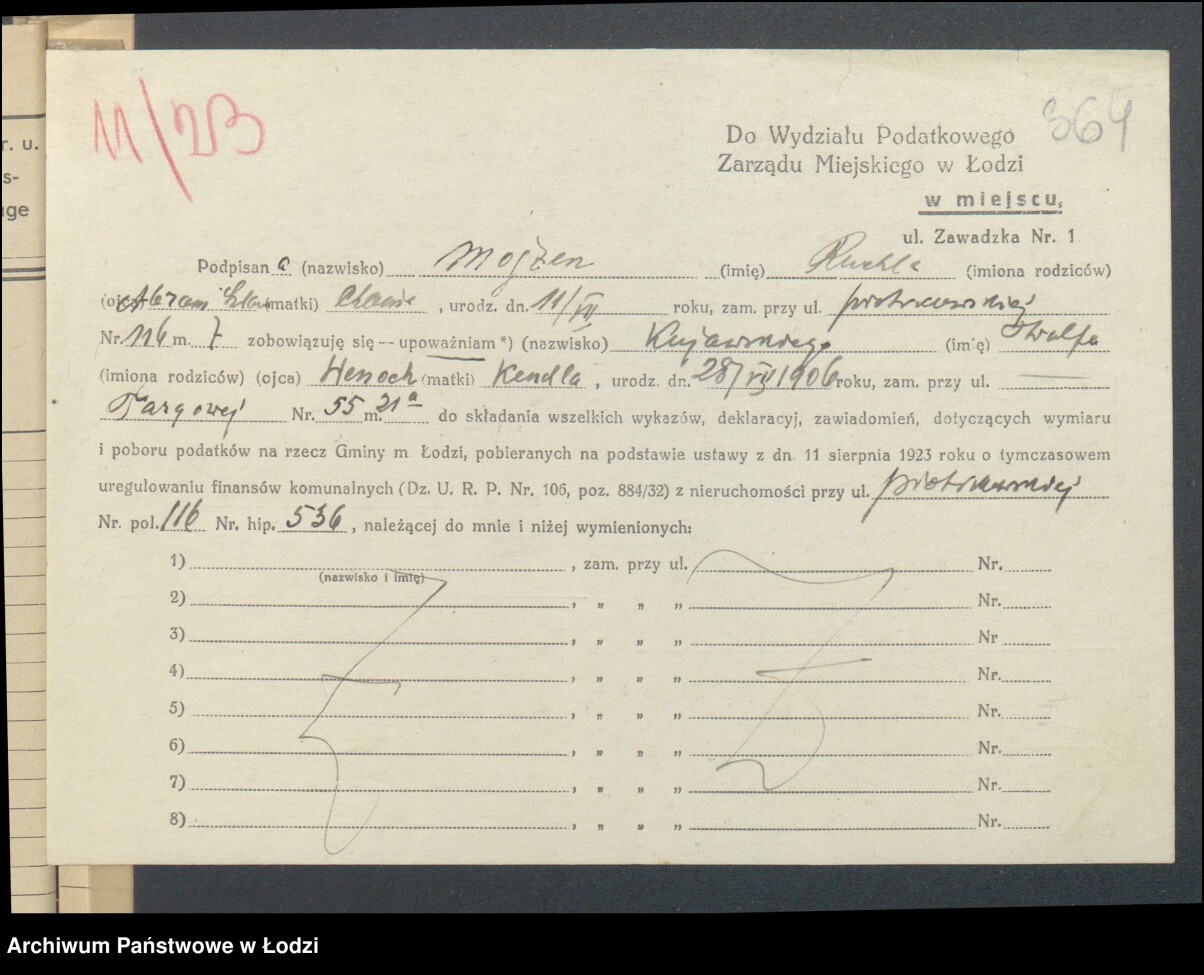 11/2B
364
r. u.
s-
age
Do Wydziału Podatkowego
Zarządu Miejskiego w Łodzi
w miejscu,
ul. Zawadzka Nr. 1
Podpisan a (nazwisko) Mojżen (imię) Ruchla (imiona rodziców)
(ojca Abram (matki) Chania, urodz. dn. 11/VII roku, zam. przy ul. piotrkowskiej
Nr. 116 m. 7 zobowiązuję się — upoważniam *) (nazwisko) Kujawskiego (imię)
(imiona rodziców) (ojca) Henoch (matki) Kendla, urodz. dn. 28/VII 1906 roku, zam. przy ul.
Targowej Nr. 55 m. 21a do składania wszelkich wykazów, deklaracyj, zawiadomień, dotyczących wymiaru
i poboru podatków na rzecz Gminy m. Łodzi, pobieranych na podstawie ustawy z dn. 11 sierpnia 1923 roku o tymczasowem
uregulowaniu finansów komunalnych (Dz. U. R. P. Nr. 106, poz. 884/32) z nieruchomości przy ul. piotrkowskiej
Nr. pol. 116 Nr. hip. 536, należącej do mnie i niżej wymienionych:
1) , zam. przy ul. Nr.
(nazwisko i imię)
2) , „ „ „ Nr.
3) , „ „ „ Nr
4) , „ „ „ Nr.
5) , „ „ „ Nr.
6) , „ „ „ Nr.
7) , „ „ „ Nr.
8) , „ „ „ Nr.
Archiwum Państwowe w Łodzi